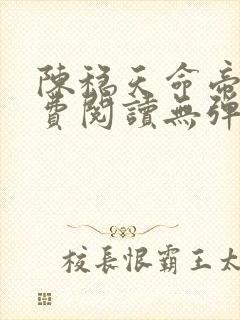 陳稳天命帝
費閱讀無彈
校長恨霸王太